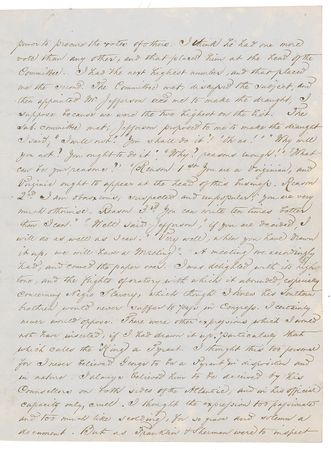 power to procure the votes of others. I think he had one more
vote than any other, and that placed him at the head of the
Committee. I had the next highest number, and that placed
me the second. The Committee met, discussed the subject, and
then appointed Mr. Jefferson and me to make the draught, I
suppose because we were the two highest on the list. The
Sub-committee met; Jefferson proposed to me to make the draught
I said, "I will not." "You shall do it". "Oh no!" "Why will
you not? You ought to do it". "Why?" "Reasons enough!" "What
can be your reasons?" "Reason 1st You are a Virginian, and
Virginia ought to appear at the head of this business. Reason
2d I am obnoxious, suspected and unpopular; you are very
much otherwise. Reason 3d You can write ten times better
than I can." "Well" said Jefferson, "if you are decided I
will do as well as I can." "Very well, when you have drawn
it up, we will have a Meeting". A meeting we accordingly
had, and conned the paper over. I was delighted with its high
tone, and the flights of oratory with which it abounded, especially
concerning Negro Slavery, which though I knew his Southern
brethren would never suffer to pass in Congress, I certainly
never would oppose. There were other expressions which I would
not have inserted, if I had drawn it up, particularly that
which calls the King a Tyrant. I thought this too personal
for I never believed George to be a Tyrant in disposition and
in nature. I always believed him to be deceived by his
Counsellors on both sides of the Atlantic, and in his official
capacity only, cruel. I thought the expression too passionate
and too much like scolding, for so grave and solemn a
document. But as Franklin & Sherman were to inspect